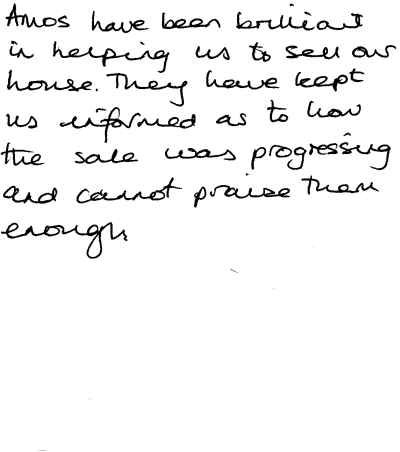 Amos have been brilliant
in helping us to sell our
house. They have kept
us informed as to how
the sale was progressing
and cannot praise them
enough.